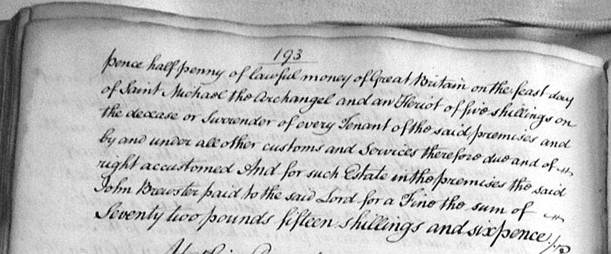 193
pence half penny of lawful money of Great Britain on the feast day
of Saint Michael the Archangel and an Heriot of five shillings on
the decease or Surrender of every Tenant of the said premises and
by and under all other customs and Services therefore due and of
right accustomed And for such Estate in the premises the said
John Brewster paid to the said Lord for a Fine the sum of
Seventy two pounds fifteen shillings and sixpence